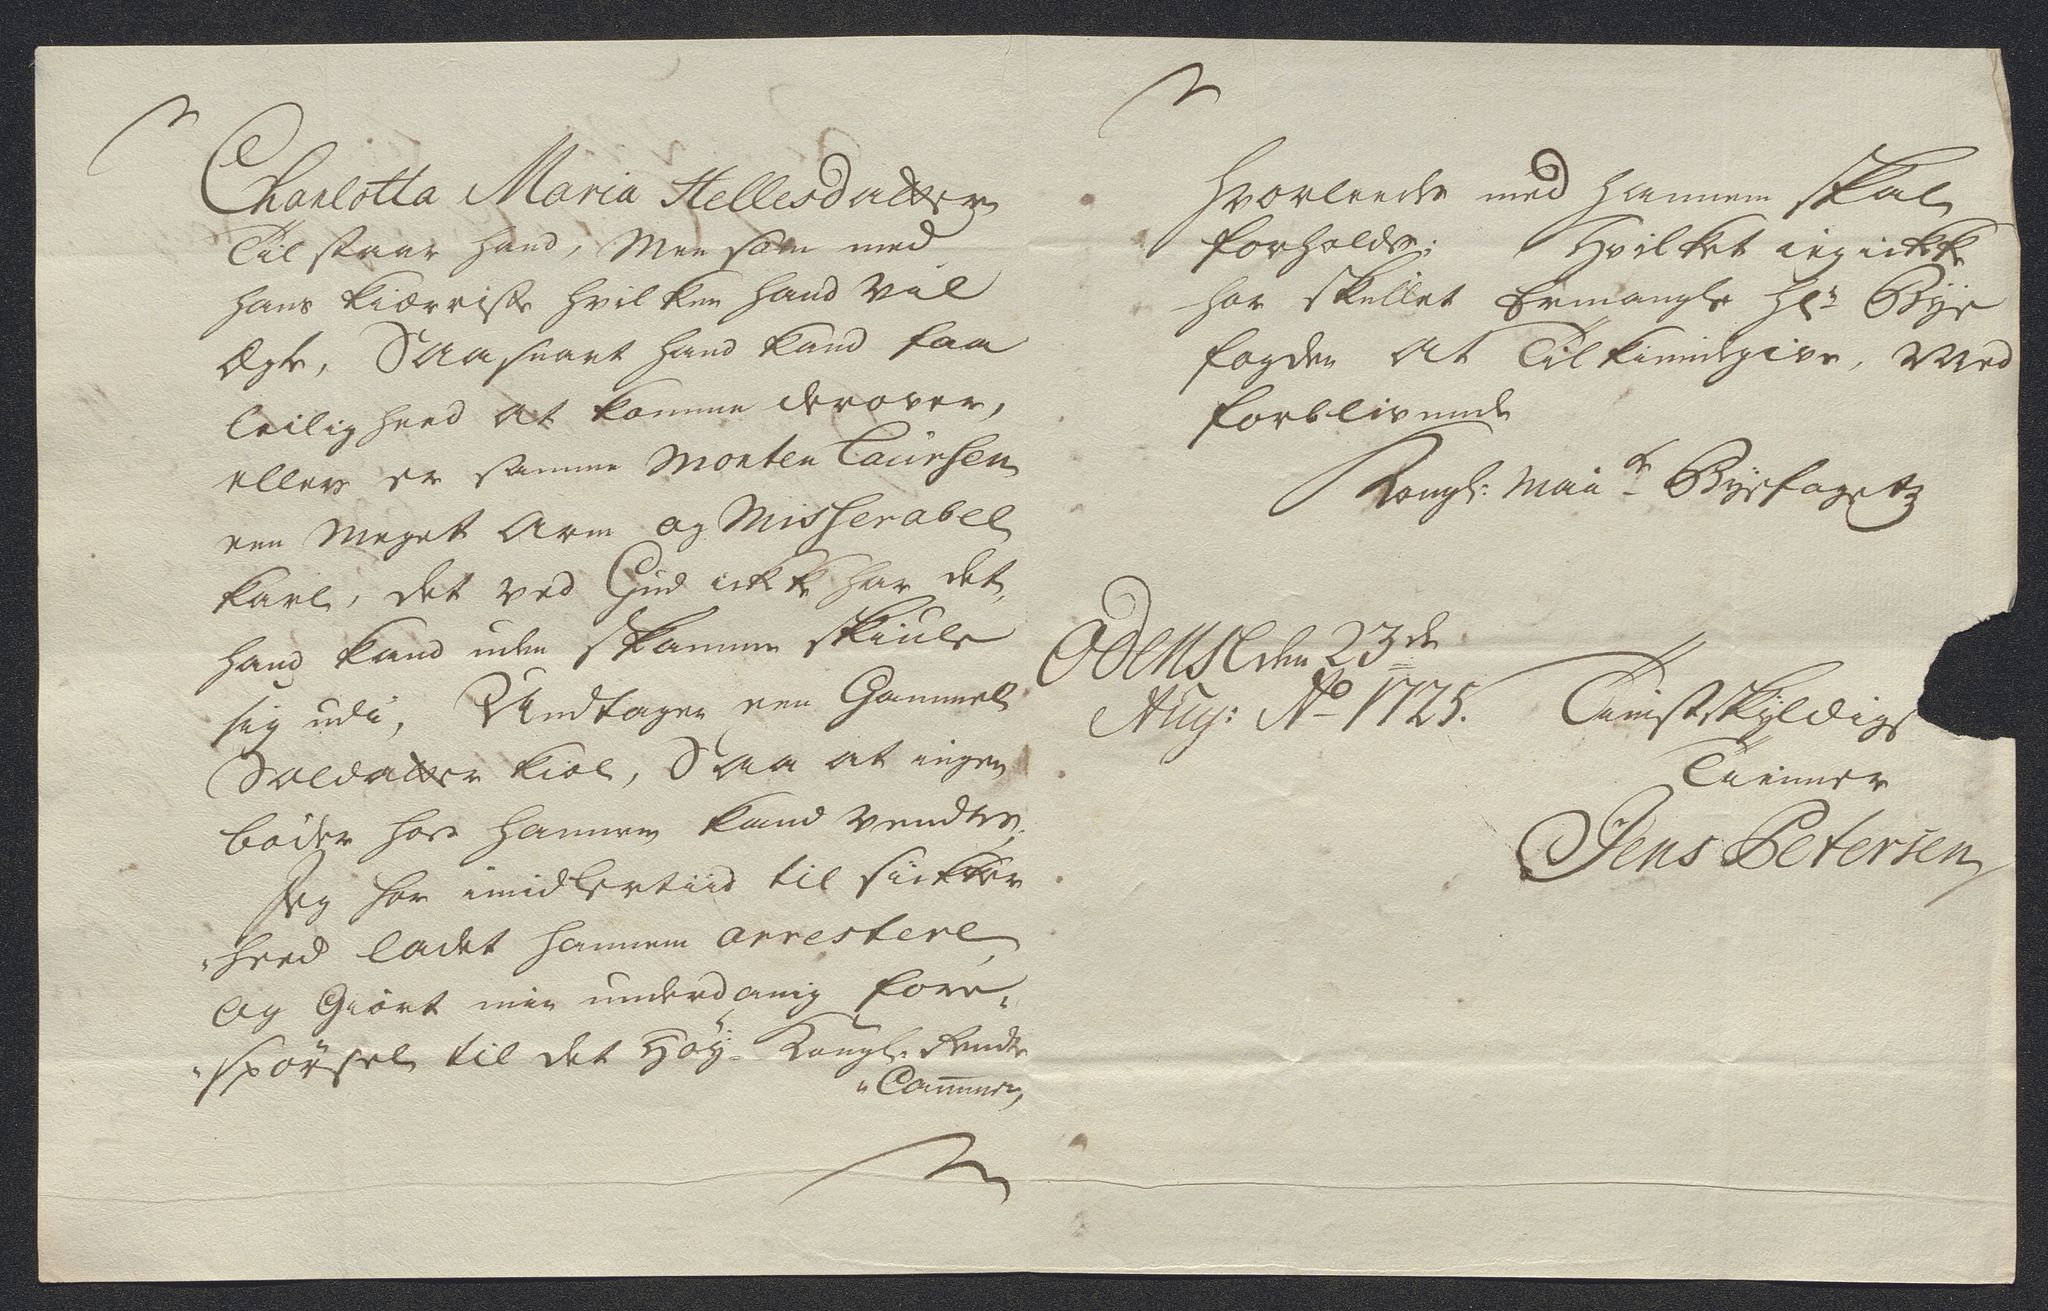 Charlotta Maria Hellesdatter
Tilstaar hand, Men som med
hans kiæreste hvilken hand vil
Ægte, Saasnart hand kand faa
leilighed at komme derover,
ellers er samme Morten Laursen
een meget Arm og Misserabel
karl, det ved Gud ickke har det,
hand kand uden skamme skiule
sig udi, Undtagen een Gammel
Soldatter kiol, Saa at ingen
bøder hos hannem kand ventes,
Jeg har imidlertiid til sickker„
„heed ladet hannem arrestere,
og Giort min underdanig fore„
„spørsel til det Høy- Kongl: Rendte
„Cammer,
hvorleedes med hannem skal
forholdes; Hvilket ieg ickke
har skullet Ermangle Hr: Bye
fogden at Tilkiendegive, Med
forblivende
Kongl: Maÿts Byefogetz
Odense den 23de
Aug: Ao 1725.
Tienstskyldigs
Tienner
Jens Petersen